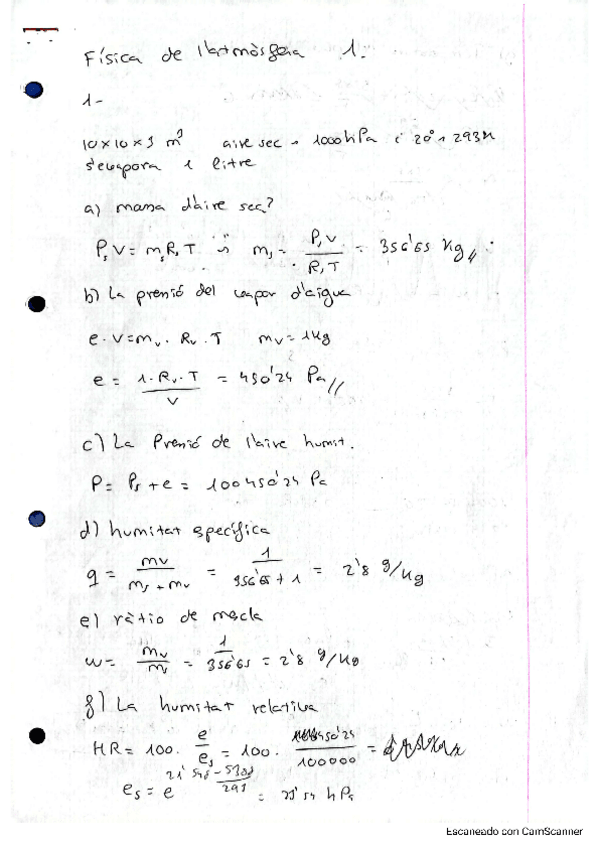 Física de l'atmòsfera 1.
1-
10x10x3 m³ aire sec 1000hPa i 20° 293K
s'evapora 1 litre
a) massa d'aire sec?
PsV = msRsT ms = PsV / RsT = 356'65 Kg
b) La pressió del vapor d'aigua
e·V = mv·Rv·T mv = 1Kg
e = 1·Rv·T / V = 450'24 Pa
c) La Pressió de l'aire humit.
P = Ps + e = 100450'24 Pa
d) humitat específica
q = mv / ms + mv = 1 / 356'65 + 1 = 2'8 g/Kg
e) ràtio de mescla
w = mv / ms = 1 / 356'65 = 2'8 g/Kg
f) La humitat relativa
HR = 100· e / es = 100· 450'24 / 100000 =
es = e = 23'54 hPa
Escaneado con CamScanner